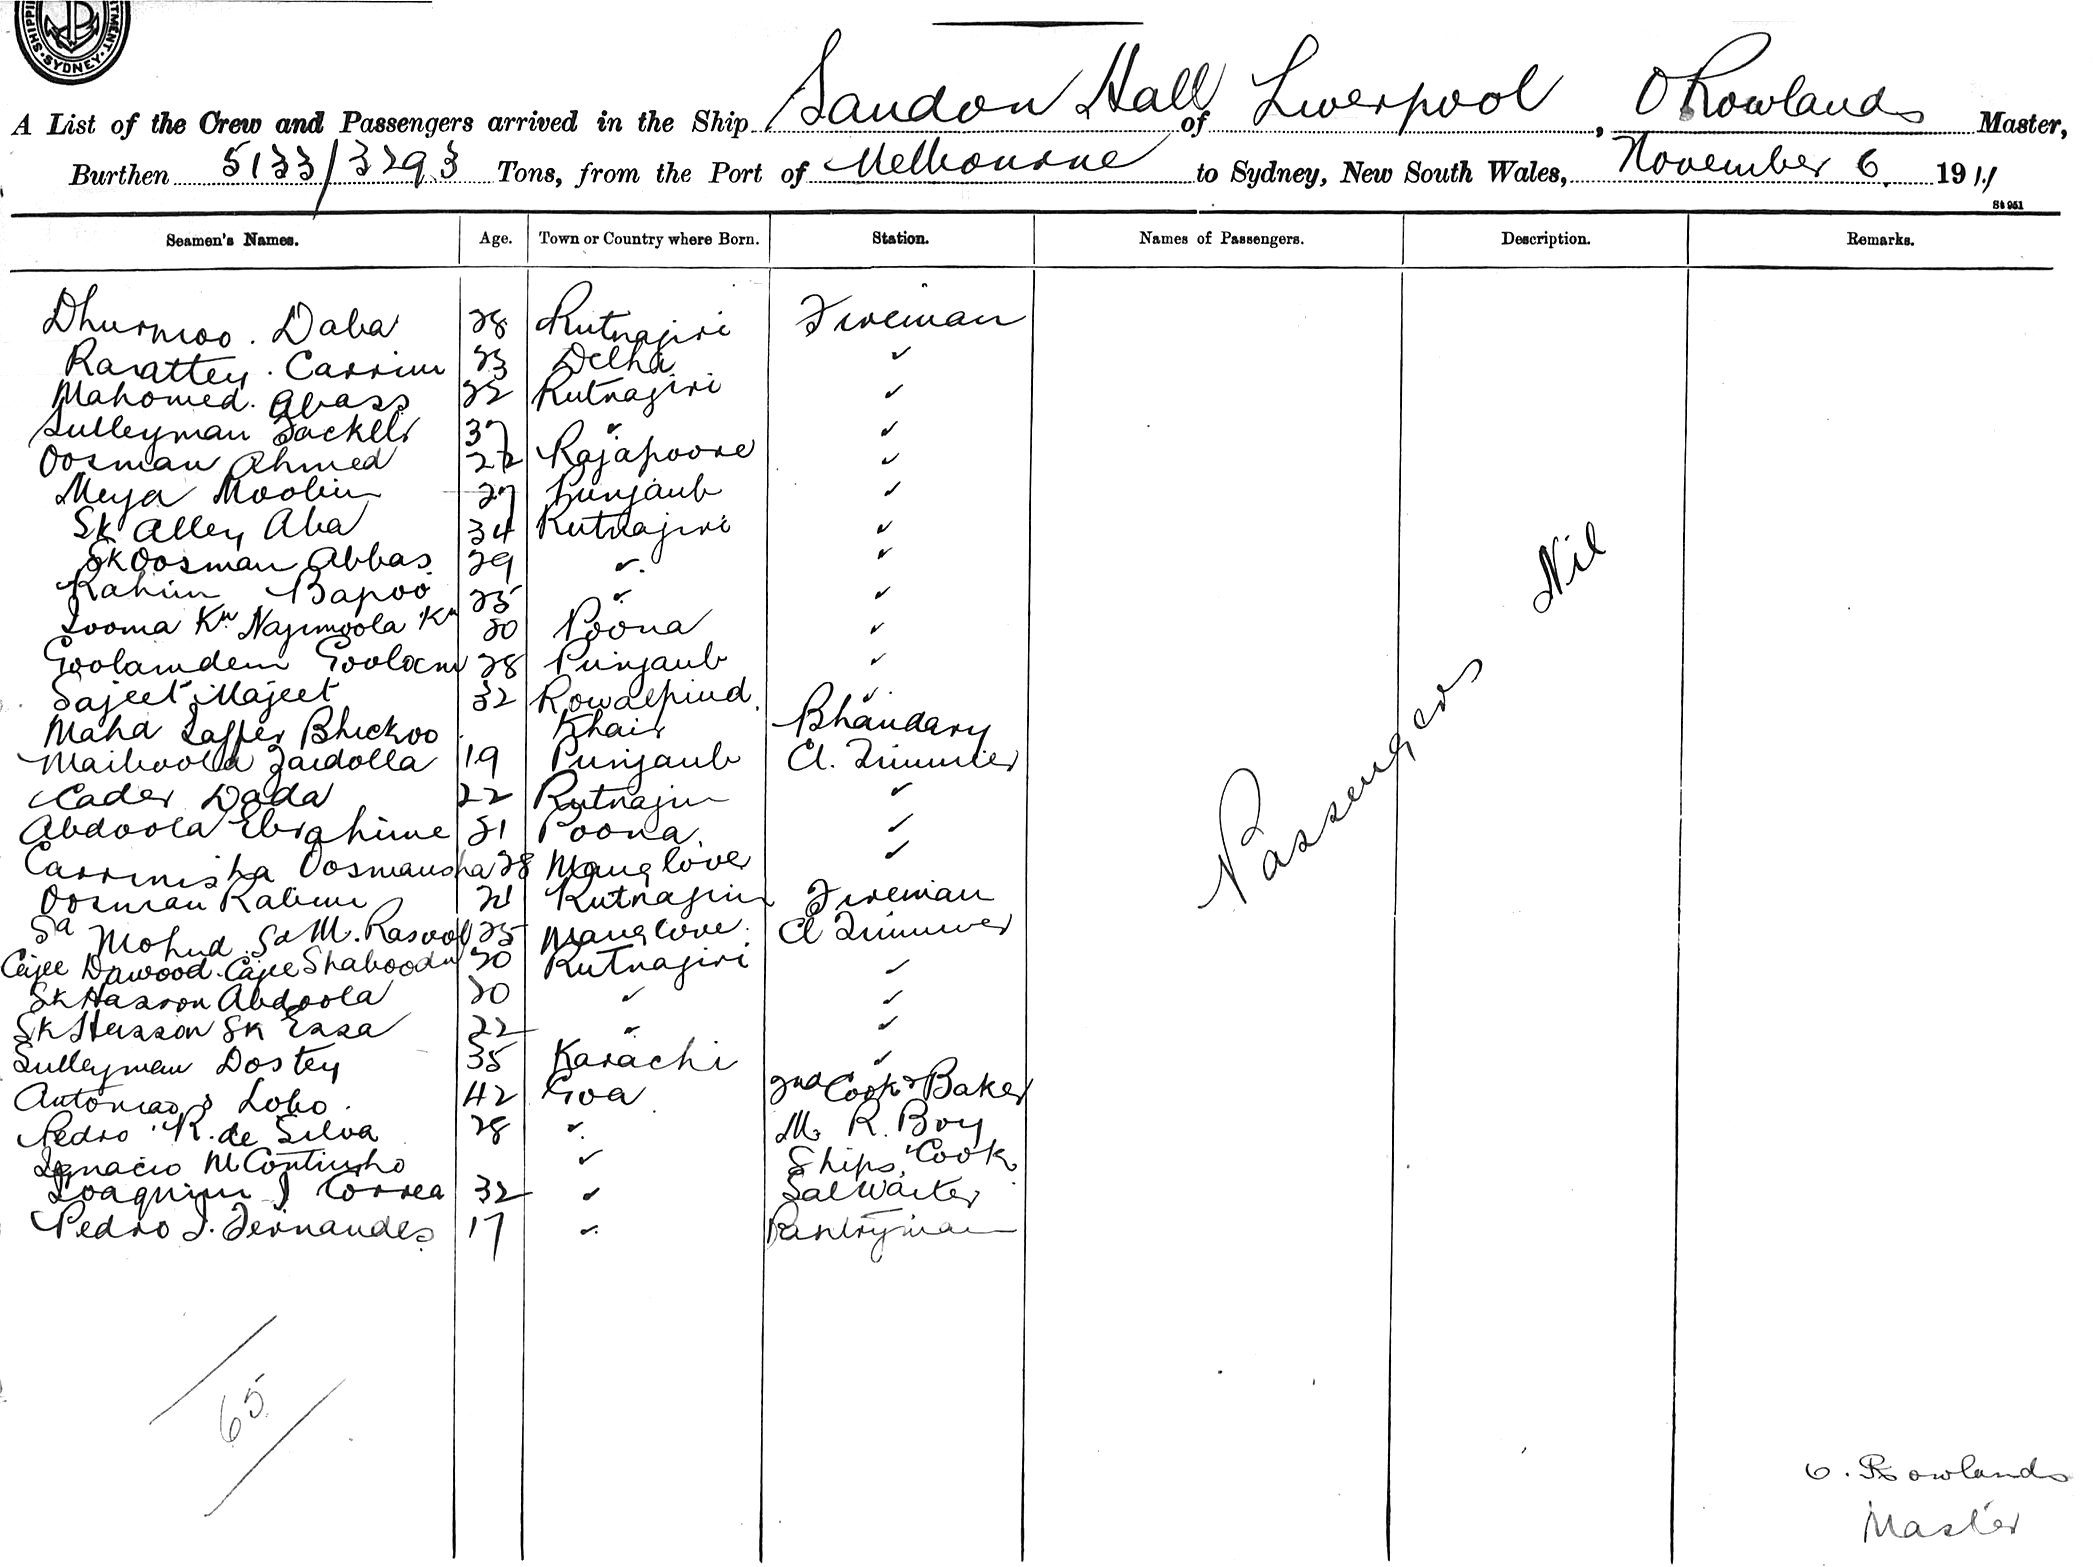 SHIPPING DEPARTMENT. SYDNEY.
A List of the Crew and Passengers arrived in the Ship Sandon Hall of Liverpool, O Rowlands Master,
Burthen 5133/3293 Tons, from the Port of Melbourne to Sydney, New South Wales, November 6. 1911
St 951
Seamen's Names. Age. Town or Country where Born. Station. Names of Passengers. Description. Remarks.
Dhurmoo. Daba 28 Rutnagiri Fireman
Rarattey. Carrim 23 Delha ✓
Mahomed. Abass 22 Rutnagiri ✓
Sulleyman Jackeer 37 ✓ ✓
Oosman Ahmed 22 Rajapoore ✓
Meya Moobin 27 Punjaub ✓
Sk Alley Aba 34 Rutnagiri ✓
Sk Oosman Abbas. 29 ✓ ✓
Rahim Bapoo 25 ✓ ✓
Jooma Kn Najimoola Kn 20 Poona ✓
Goolamdeen Goolam 28 Punjaub ✓
Sajeet Majeet 32 Rowalpind. ✓
Maha Jaffer Bhickoo Khair Bhandary
Maiboolla Zaidolla 19 Punjaub Cl. Trimmer
Cader Dada 22 Rutnagiri ✓
Abdoola Ebrahime 21 Poona ✓
Carrimsha Oosmansha 28 Manglore ✓
Oosman Rahim 21 Rutnagiri Fireman
Sd Mohud. Sd M. Rasool 25 Manglore. Cl Trimmer
Cajee Dawood. Cajee Shaboodn 20 Rutnagiri ✓
Sk Hasson Abdoola 20 ✓ ✓
Sk Husson Sk Essa 22 ✓ ✓
Sulleyman Dostey 35 Karachi ✓
Antonio Lobo. 42 Goa 2nd Cook & Baker
Pedro R. de Silva 28 ✓ M. R. Boy
Ignacio M Contiuho ✓ Ships Cook.
Joaquim J Correa 32 ✓ Sal Waiter
Pedro J. Fernandes 17 ✓ Pantryman
Passengers Nil
65
O. Rowlands
Master